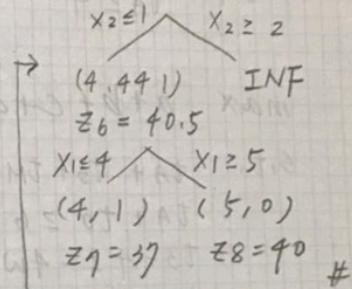 x₂≤1 x₂≥2
(4.44 1) INF
Z₆ = 40.5
x₁≤4 x₁≥5
(4,1) (5,0)
Z₇=37 Z₈=40
#